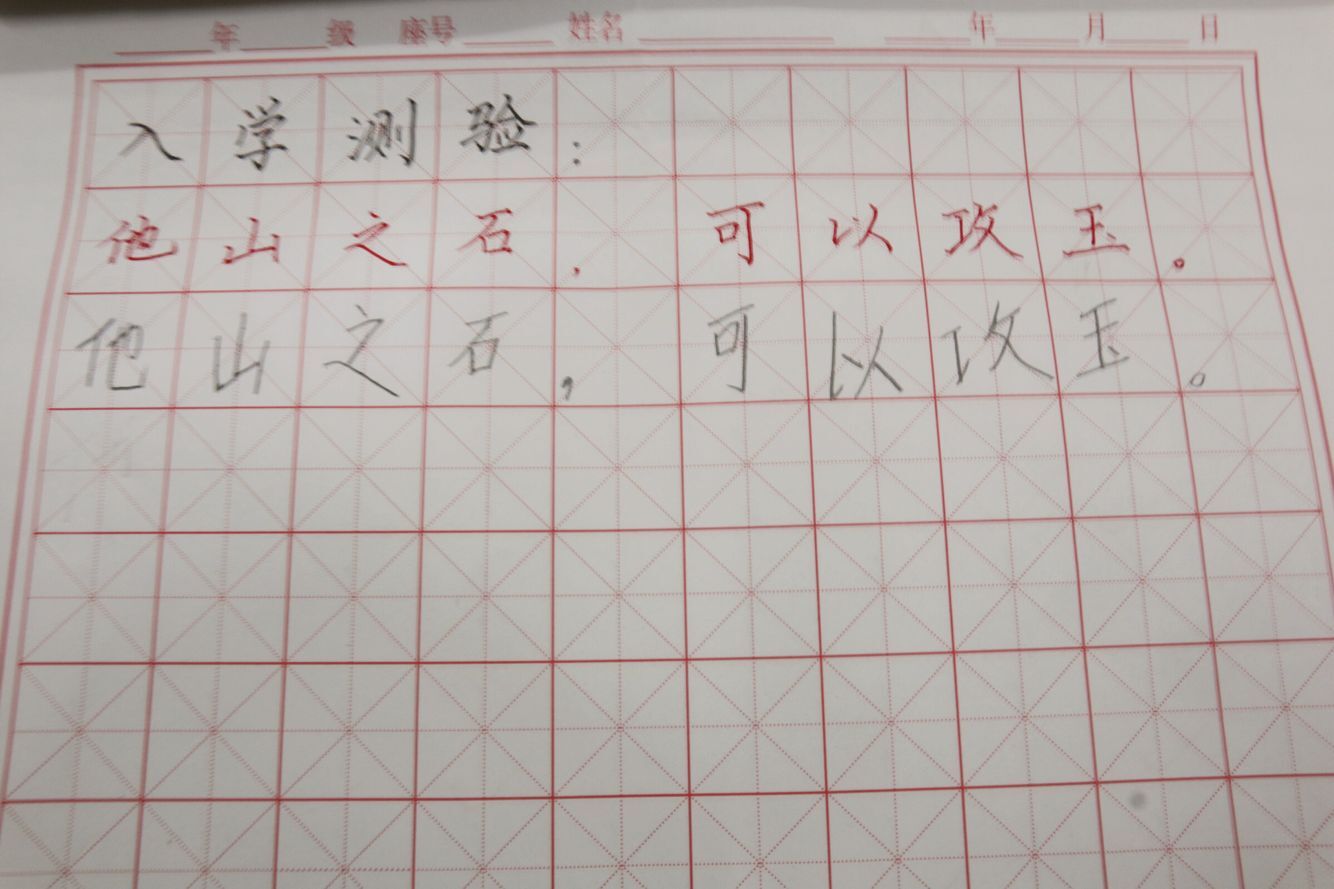 年 级 座号 姓名 年 月 日
入学测验：
他山之石，可以攻玉。
他山之石，可以攻玉。